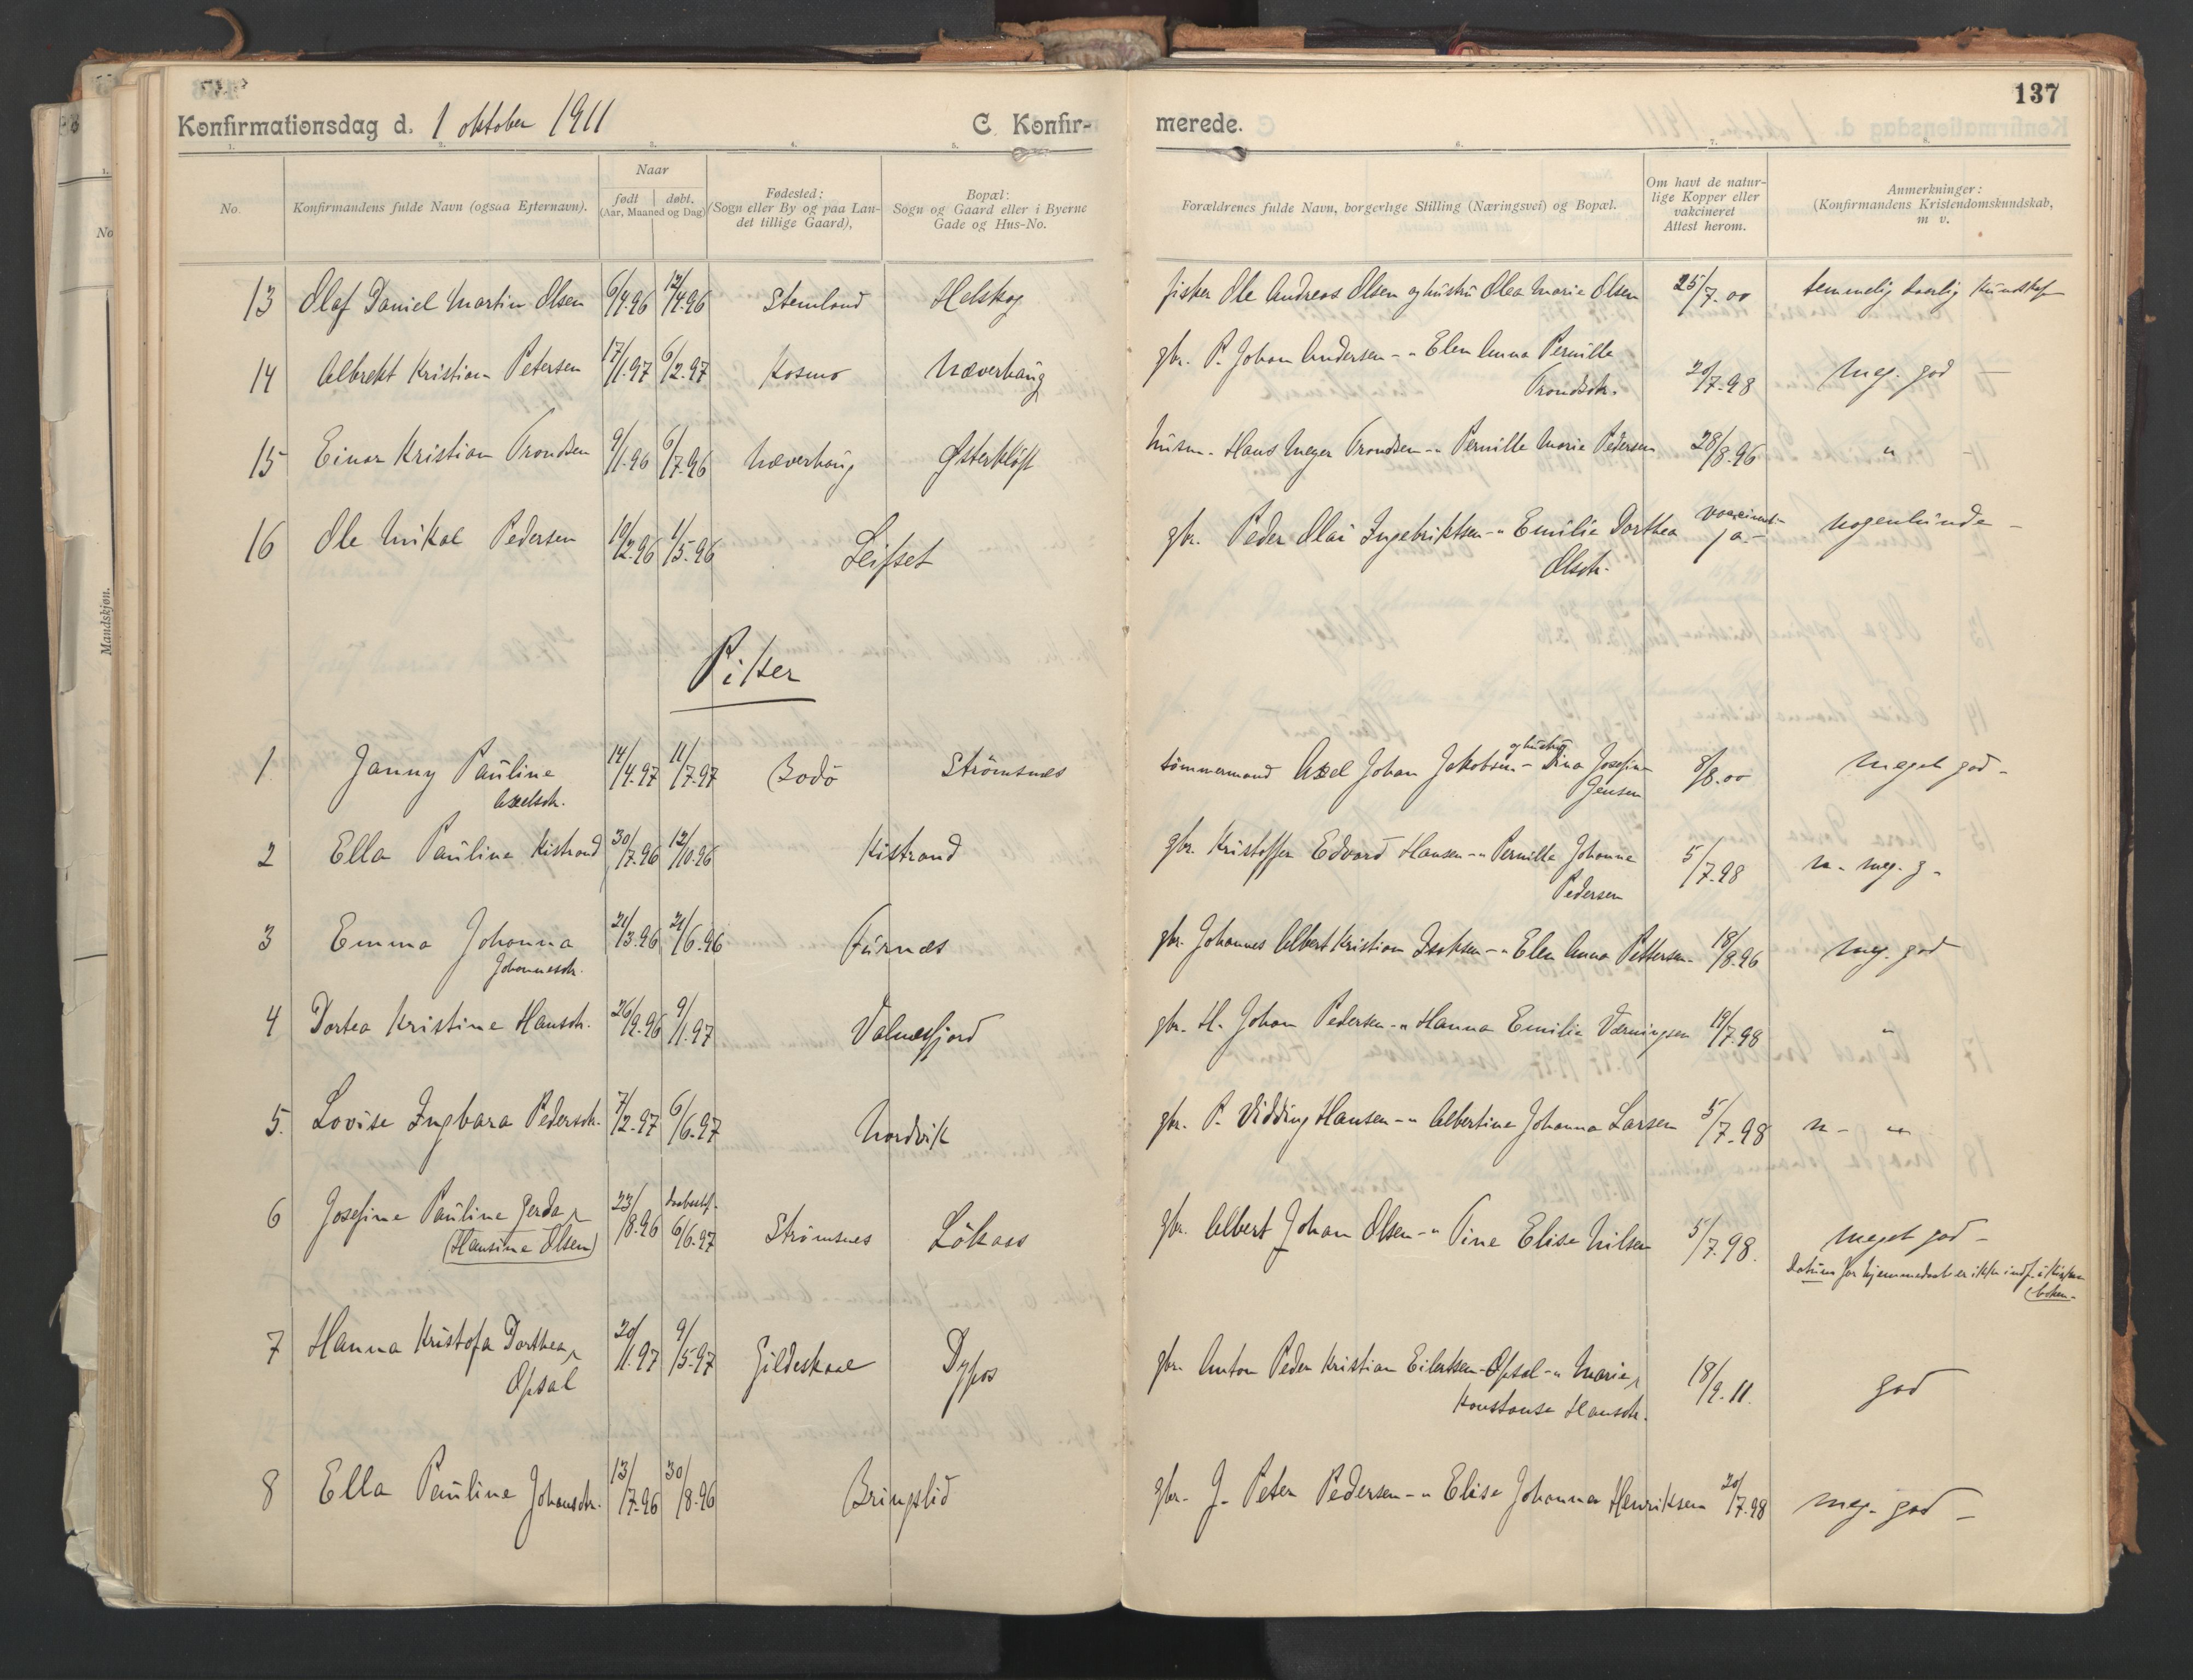 137
Konfirmationsdag d. 1 oktober 1911
C. Konfir-
merede.
1. 2. 3. 4. 5. 6. 7. 8.
No.
Konfirmandens fulde Navn (ogsaa Efternavn).
Naar
født døbt.
(Aar, Maaned og Dag)
Fødested:
(Sogn eller By og paa Lan-
det tillige Gaard),
Bopæl:
Sogn og Gaard eller i Byerne
Gade og Hus-No.
Forældrenes fulde Navn, borgerlige Stilling (Næringsvei) og Bopæl.
Om havt de natur-
lige Kopper eller
vakcineret
Attest herom.
Anmerkninger:
(Konfirmandens Kristendomskundskab,
m v.
13 Olaf Daniel Martin Olsen 6/4.96 12/4.96 Stemland Helskog fisker Ole Andreas Olsen og hustru Olea Marie Olsen 25/7.00 temmelig daarlig kundskap
14 Albrekt Kristian Petersen 17/1.97 6/2.97 Kosmo Næverhaug gbr. P. Johan Andersen - " Elen Anna Pernille
Trondsdtr. 20/7.98 Meg. god -
15 Einar Kristian Trondsen 9/1.96 6/7.96 Næverhaug Østerkløft husm. Hans Meyer Trondsen - " Pernille Marie Pedersen 28/8.96 " -
16 Ole Mikal Pedersen 19/2.96 1/5.96 Leifset gbr. Peder Olai Ingebriktsen - " Emilie Dorthea
Olsdtr. vaccinert
ja - nogenlunde -
Piker
1 Janny Pauline
Axelsdtr. 14/4.97 11/7.97 Bodö Strömsnes tömmermand Axel Johan Jakobsen - og hustru Dina Josefine
Jensen 8/8.00 Meget god -
2 Ella Pauline Kistrand 30/7.96 12/10.96 Kistrand gbr. Kristoffer Edvard Hansen - " Pernille Johanna
Pedersen 5/7.98 n - meg. g -
3 Emma Johanna
Johannesdtr. 21/3.96 21/6.96 Furnes gbr. Johannes Albert Kristian Isaksen - " Elen Anna Pettersen - 18/8.96 Meg. god
4 Dortea Kristine Hansdtr. 26/9.96 9/1.97 Valnesfjord gbr. H. Johan Pedersen - " Hanna Emilie Væringsen 19/7.98 "
5. Lovise Ingbara Pedersdtr. 7/2.97 6/6.97 Nordvik gbr. P. Vidding Hansen - " Albertine Johanna Larsen 5/7.98 n - "
6 Josefine Pauline Gerda
(Hansine Olsen) 23/8.96 daabest.
6/6.97 Strömsnes Lökaas gbr. Albert Johan Olsen - " Tine Elise Nilsen 5/7.98. meget god -
Datum for hjemmedaab er ikke indf. i kirke
boken -
7 Hanna Kristofa Dorthea
Opsal 20/11.97 9/5.97 Gildeskaal Dypos gbr. Anton Peder Kristian Eilertsen Opsal - " Marie
Konstanse Hansdtr. 18/9.11. god
8 Ella Pauline Johansdtr. 13/7.96 30/8.96 Bringslid gbr. J. Peter Pedersen - " Elise Johanna Henriksen 20/7.98 meg. god -
No
Mandskjøn.